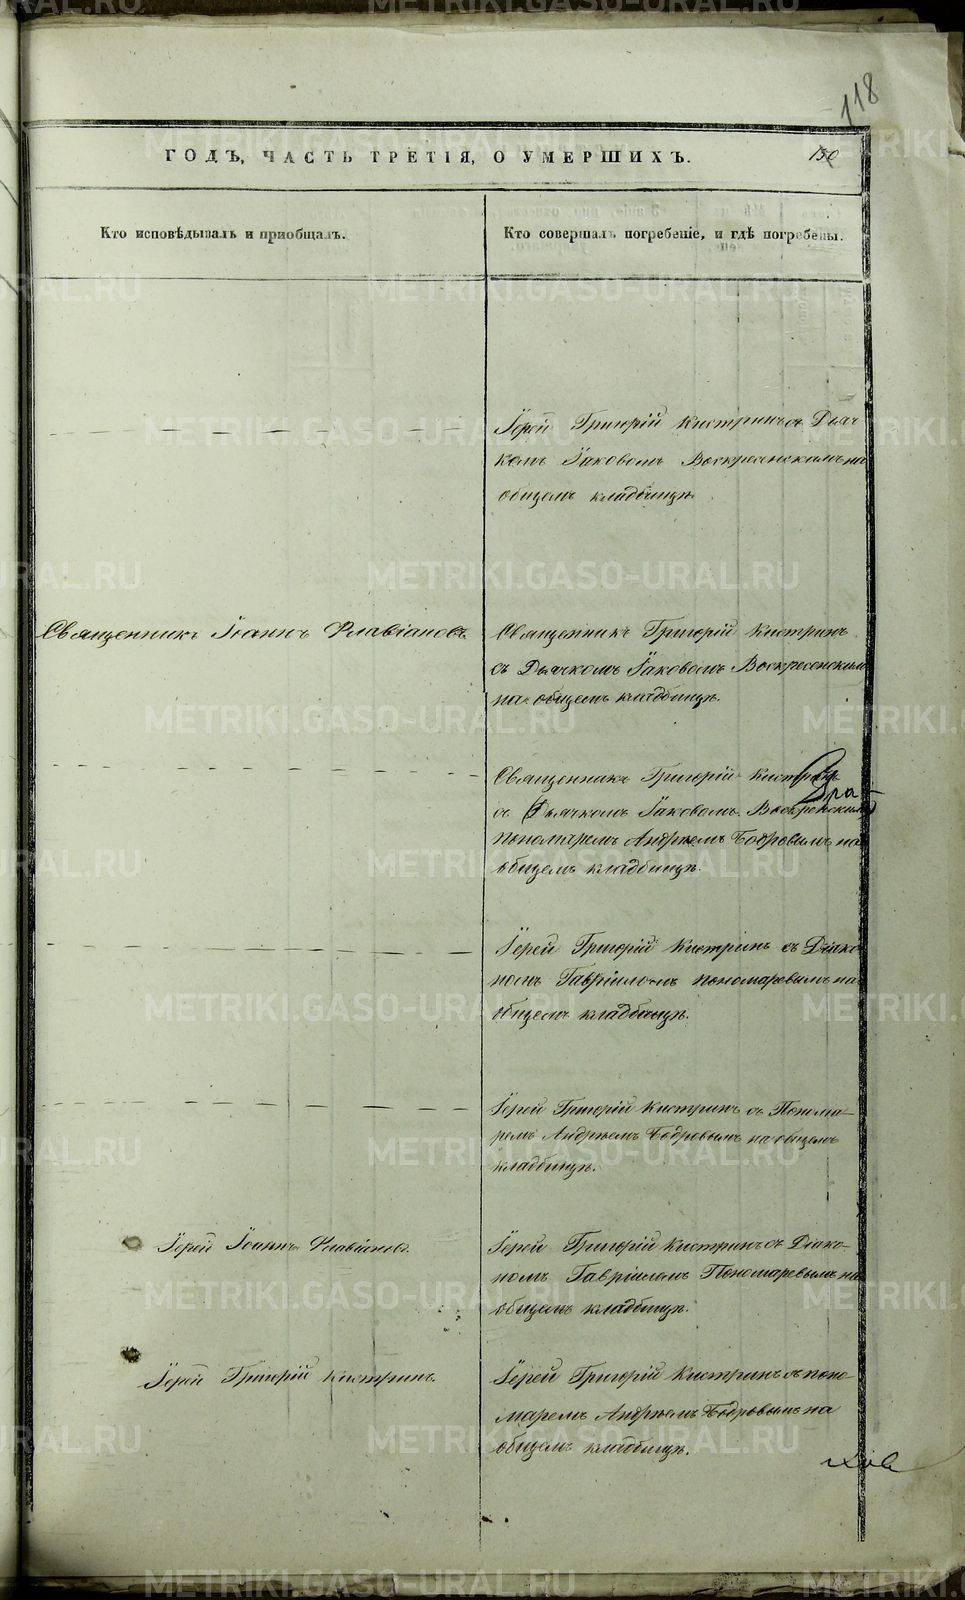 118
ГОДЪ, ЧАСТЬ ТРЕТІЯ, О УМЕРШИХЪ.
130
Кто исповѣдывалъ и приобщалъ.
Кто совершалъ погребеніе, и гдѣ погребены.
Іерей Григорій Кистринъ съ Дьяч
комъ Іаковомъ Воскресенскимъ на
общемъ кладбищѣ.
Священникъ Іоаннъ Флавіановъ
Священникъ Григорій Кистринъ
съ Дьячкомъ Іаковомъ Воскресенским
на общемъ кладбищѣ.
Священникъ Григорій Кистринъ
съ Дьячкомъ Іаковомъ Воскресенскимъ
пономаремъ Андреемъ Бодровымъ на
общемъ кладбищѣ.
Іерей Григорій Кистринъ съ Діако
номъ Гавріиломъ Пономаревымъ на
общемъ кладбищѣ.
Іерей Григорій Кистринъ съ Понома-
ремъ Андреемъ Бодровымъ на общемъ
кладбищѣ.
Іерей Іоаннъ Флавіановъ.
Іерей Григорій Кистринъ съ Діако-
номъ Гавріиломъ Пономаревымъ на
общемъ кладбищѣ.
Іерей Григорій Кистринъ.
Іерей Григорій Кистринъ съ поно-
маремъ Андреемъ Бодровымъ на
общемъ кладбищѣ.
METRIKI.GASO-URAL.RU